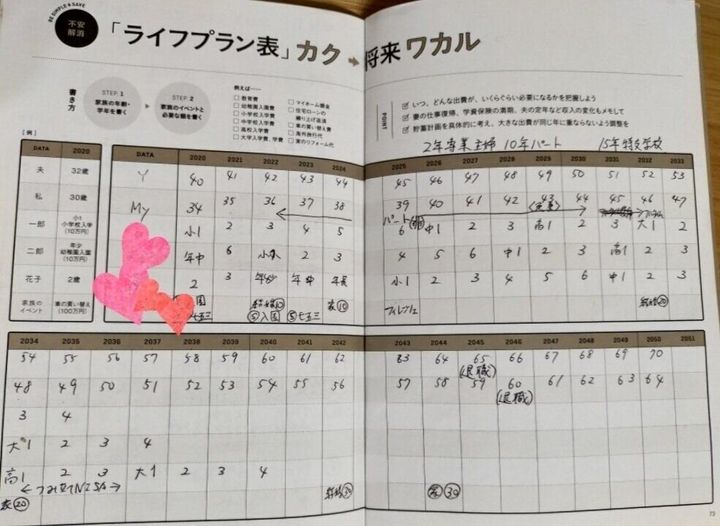 BE SIMPLE & SAVE
不安
解消
「ライフプラン表」カク → 将来ワカル
書き方
STEP. 1
家族の年齢・
学年を書く
STEP. 2
家族のイベントと
必要な額を書く
例えば……
□ 教育費
□ 幼稚園入園費
□ 小学校入学費
□ 中学校入学費
□ 高校入学費
□ 大学入学費、学費
□ マイホーム頭金
□ 住宅ローンの
繰り上げ返済
□ 車の買い替え費
□ 海外旅行代
□ 家のリフォーム代
POINT
いつ、どんな出費が、いくらぐらい必要になるかを把握しよう
妻の仕事復帰、学資保険の満期、夫の定年など収入の変化もメモして
貯蓄計画を具体的に考え、大きな出費が同じ年に重ならないよう調整を
2年専業主婦 10年パート 15年特支学校
[例]
DATA 2020
夫 32歳
私 30歳
一郎 小1 小学校入学 (10万円)
二郎 年少 幼稚園入園 (10万円)
花子 2歳
家族のイベント 車の買い替え (100万円)
DATA 2020 2021 2022 2023 2024 2025 2026 2027 2028 2029 2030 2031 2032 2033
Y 40 41 42 43 44 45 46 47 48 49 50 51 52 53
My 34 35 36 37 38 39 40 41 42 43 44 45 46 47
パート
小1 2 3 4 5 6 中1 2 3 高1 2 3 大1 2
年中 6 小1 2 3 4 5 6 中1 2 3 高1 2 3
2 3 年少 年中 年長 小1 2 3 4 5 6 中1 2 3
七五三 ⑤入園 ⑤七五三
2034 2035 2036 2037 2038 2039 2040 2041 2042 2043 2044 2045 2046 2047 2048 2049 2050 2051
54 55 56 57 58 59 60 61 62 63 64 65 66 67 68 69 70
(退職)
48 49 50 51 52 53 54 55 56 57 58 59 60 61 62 63 64
(退職)
3 4
大1 2 3 4
高1 2 3 大1 2 3 4
つみたてNISA
家⑳ 家㉚
73